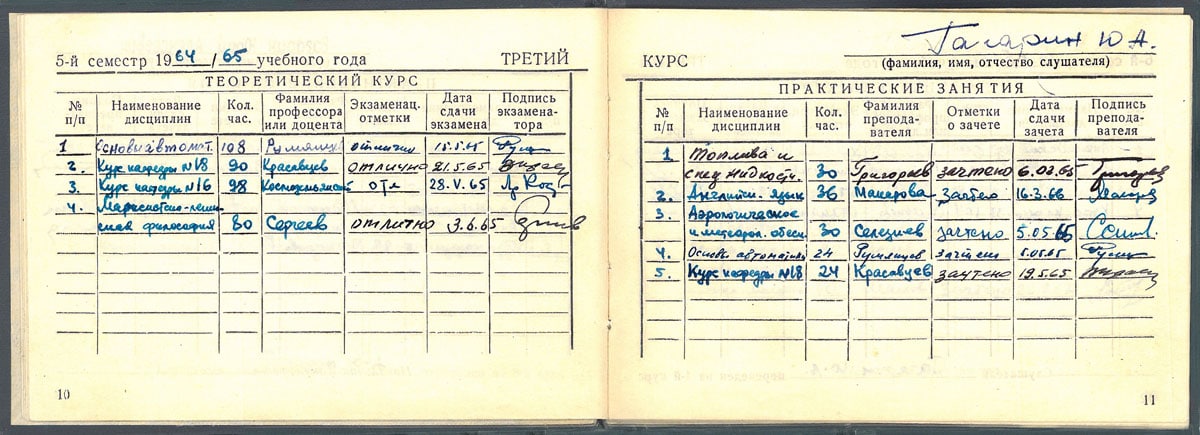 5-й семестр 1964/65 учебного года ТРЕТИЙ
ТЕОРЕТИЧЕСКИЙ КУРС
№ п/п Наименование дисциплин Кол. час. Фамилия профессора или доцента Экзаменац. отметки Дата сдачи экзамена Подпись экзамена-тора
1 Основы автомат. 108 Румянцев отлично 15.5.65
2. Курс кафедры №18 90 Красавцев отлично 21.5.65
3. Курс кафедры №16 98 отл 28.V.65
4. Марксистско-ленин-
ская философия 80 Сергеев отлично 3.6.65
10
Гагарин Ю А.
КУРС (фамилия, имя, отчество слушателя)
ПРАКТИЧЕСКИЕ ЗАНЯТИЯ
№ п/п Наименование дисциплин Кол. час. Фамилия препода-вателя Отметки о зачете Дата сдачи зачета Подпись препода-вателя
1 Топлива и
спец жидкости. 30 Григорьев зачтено 6.03.65
2. Английск. язык 36 Макарова Зачтено 16.3.66
3. Аэрологическое
и метеорол. обесп. 30 Селезнев зачтено 5.05.65
4. Основы автоматики 24 Румянцев зачтено 5.05.65
5. Курс кафедры №18 24 Красавцев зачтено 19.5.65
11